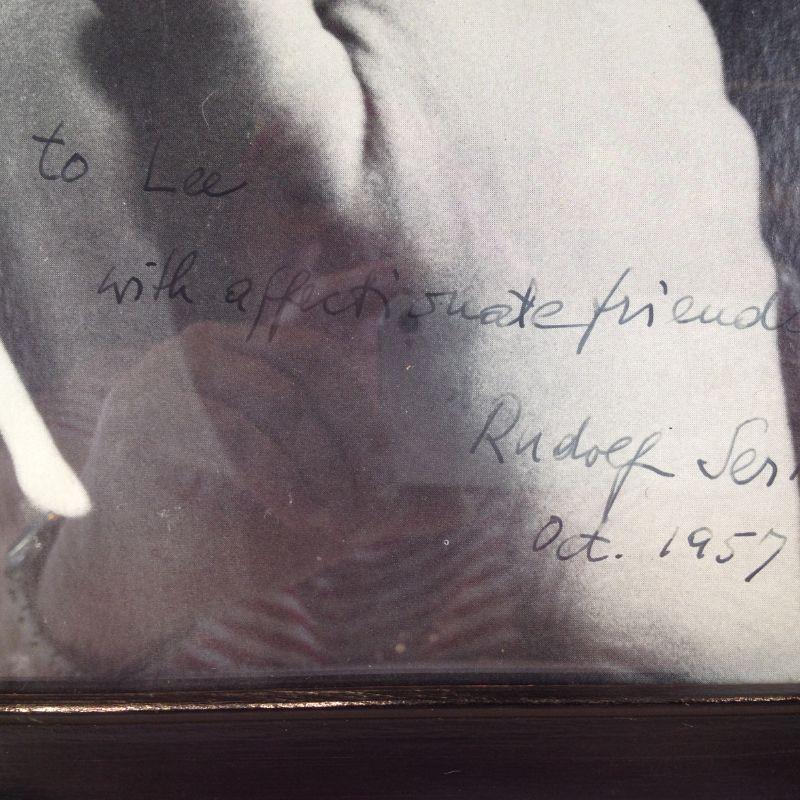 to Lee
with affectionate friend
Rudolf Ser
Oct. 1957